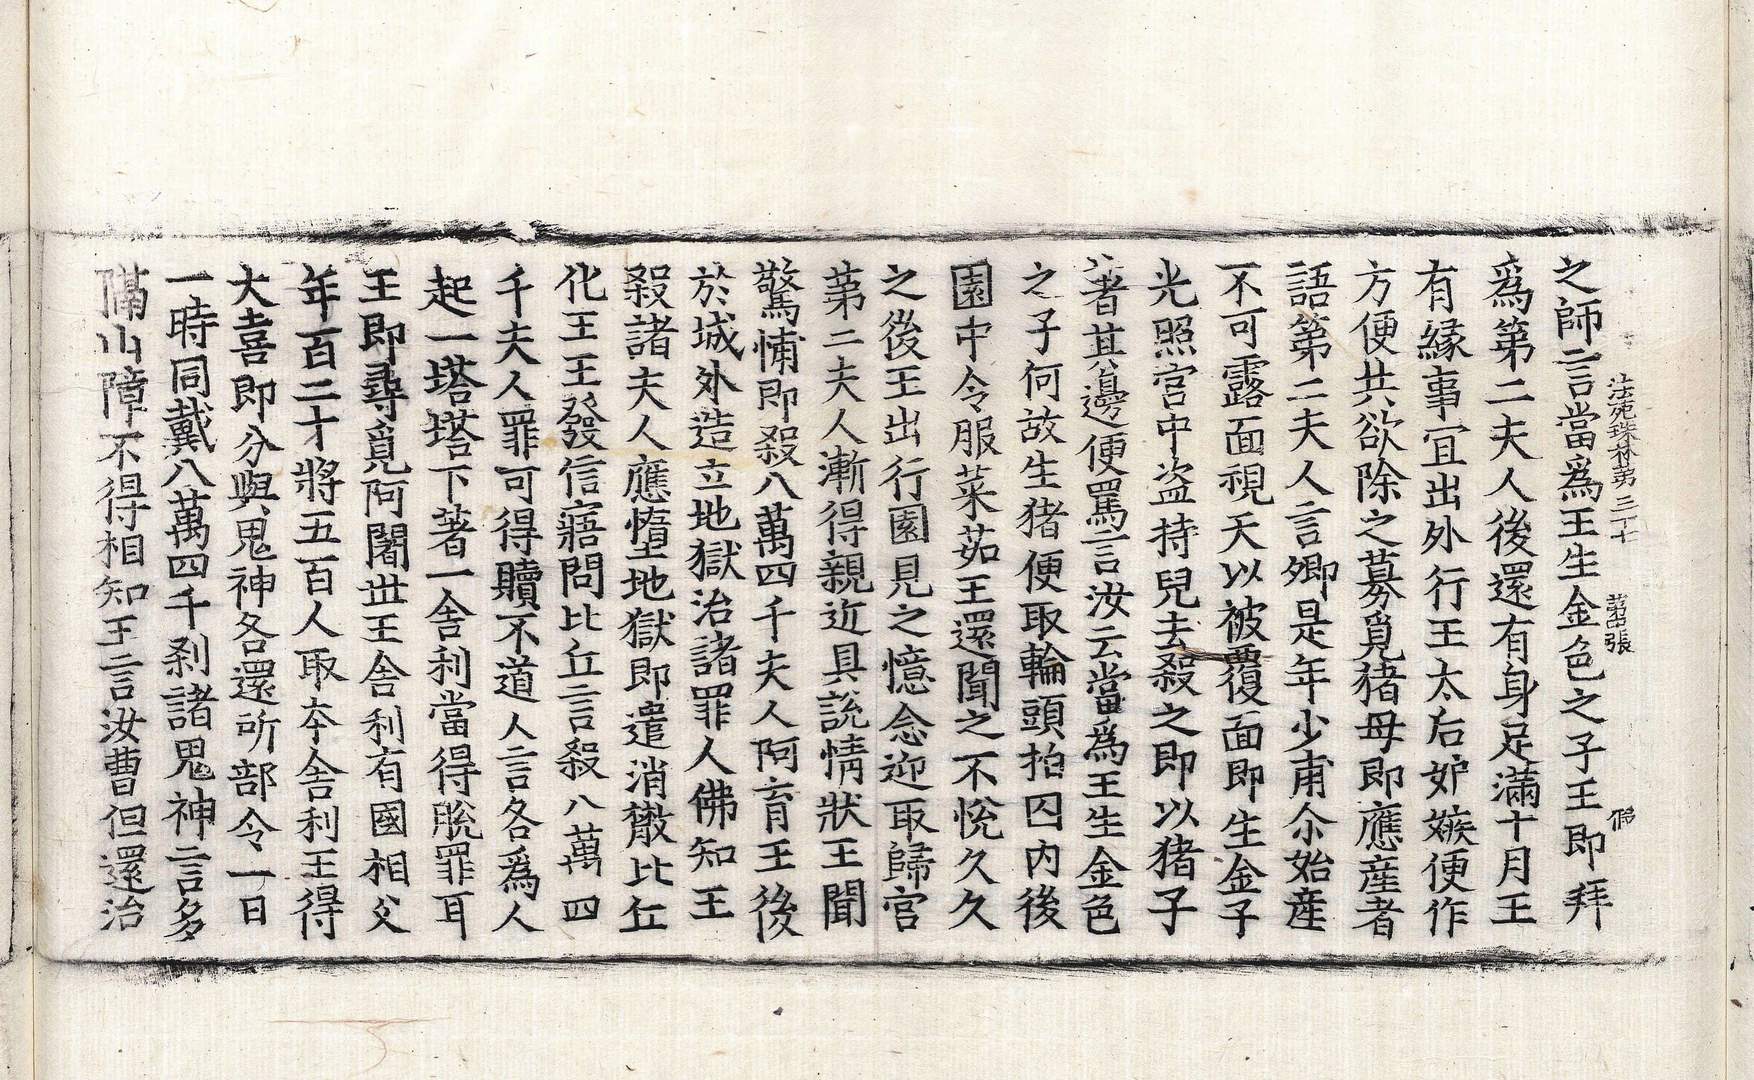 法苑珠林第三十七　第四張　假
之師言當爲王生金色之子王即拜
爲第二夫人後還有身足滿十月王
有緣事宜出外行王太后妒嫉便作
方便共欲除之募覓猪母即應產者
語第二夫人言卿是年少甫尒始產
不可露面視天以被覆面即生金子
光照宮中盗持兒去殺之即以猪子
著其邊便罵言汝云當爲王生金色
之子何故生猪便取輪頭拍囚内後
園中令服菜茹王還聞之不悅久久
之後王出行園見之憶念迎取歸宮
第二夫人漸得親近具說情狀王聞
驚愽即殺八萬四千夫人阿育王後
於城外造立地獄治諸罪人佛知王
殺諸夫人應墮地獄即遣消散比丘
化王王發信寤問比丘言殺八萬四
千夫人罪可得贖不道人言各爲人
起一塔塔下著一舍利當得脫罪耳
王即尋覓阿闍世王舍利有國相父
年百二十將五百人取夲舍利王得
大喜即分與鬼神各還所部令一日
一時同戴八萬四千刹諸鬼神言多
隔山障不得相知王言汝曹但還治